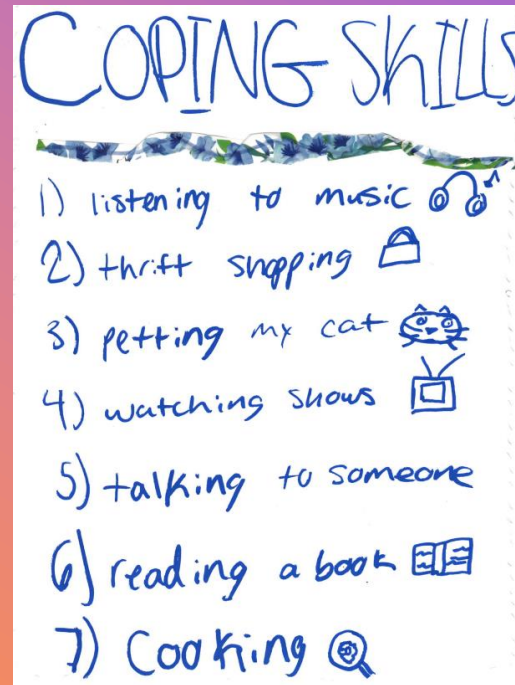 COPING SKILLS
1) listening to music
2) thrift shopping
3) petting my cat
4) watching shows
5) talking to someone
6) reading a book
7) Cooking